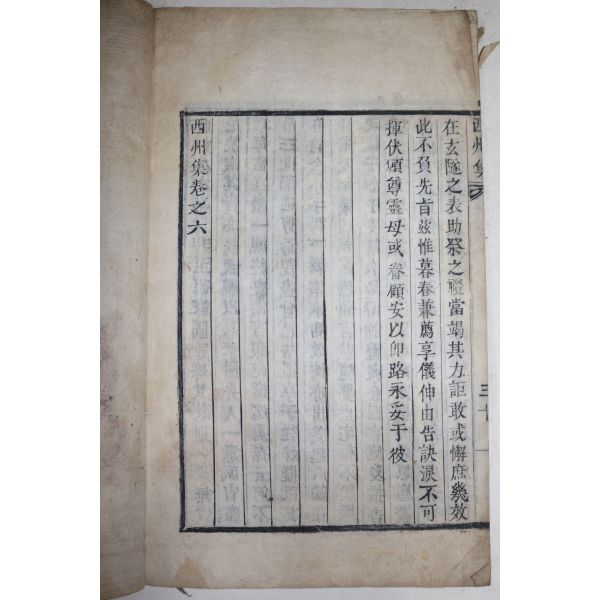 西州集
在玄隧之表助祭之禮當竭其力詎敢或懈庶幾效
此不負先旨玆惟暮春兼薦享儀伸由告訣淚不可
揮伏頌尊靈毋或眷顧安以卽路永妥于彼
西州集卷之六